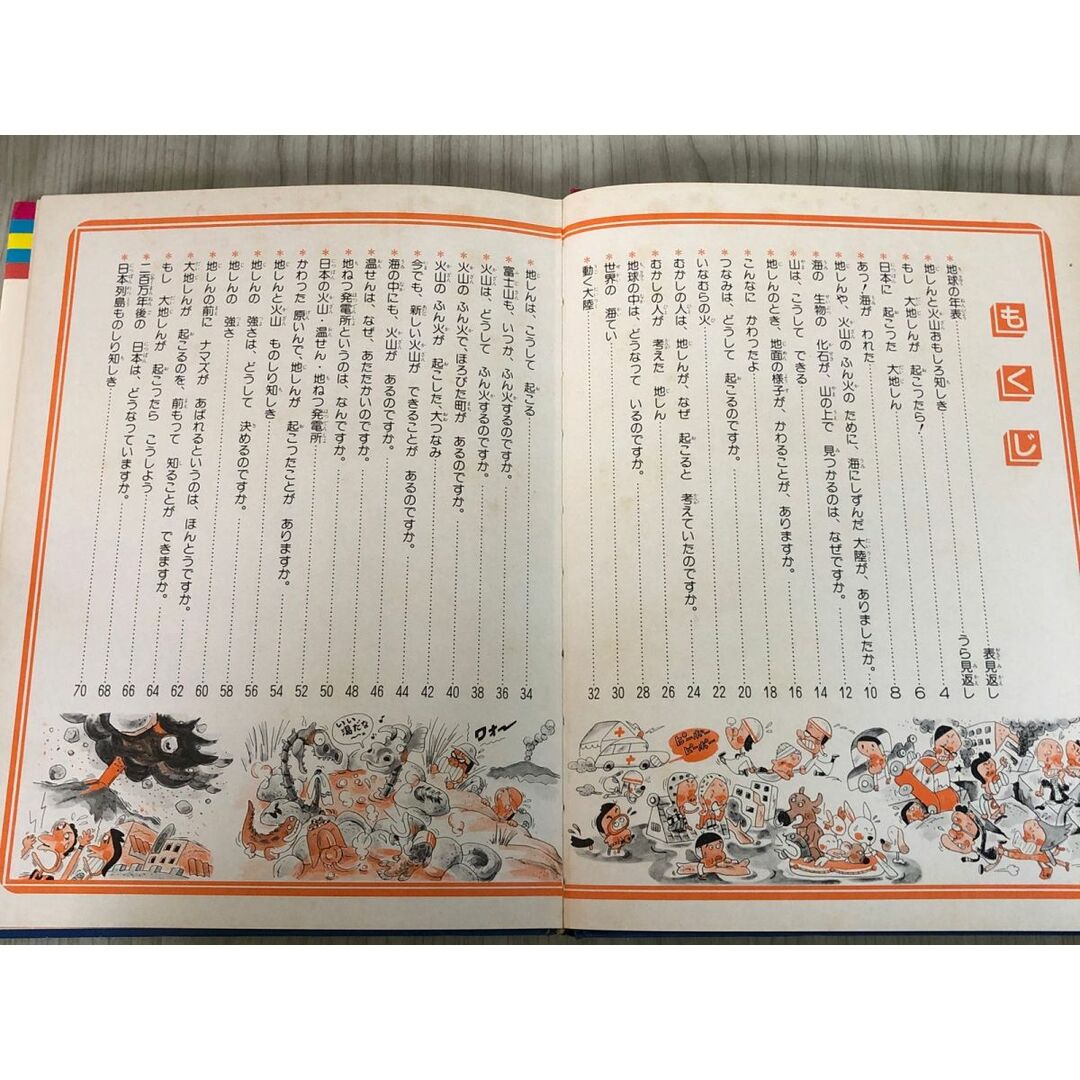 もくじ
地球の年表……表見返し
地しんと火山おもしろ知しき……うら見返し
＊もし 大地しんが 起こったら！……4
＊日本に 起こった 大地しん……6
＊あっ！海が われた……8
＊地しんや、火山の ふん火の ために、海にしずんだ 大陸が、ありましたか。……10
＊海の 生物の 化石が、山の上で 見つかるのは、なぜですか。……12
＊山は、こうして できる……14
＊地しんのとき、地面の様子が、かわることが、ありますか。……16
＊こんなに かわったよ……18
＊つなみは、どうして 起こるのですか。……20
＊いなむらの火……22
＊むかしの人は、地しんが、なぜ 起こると 考えていたのですか。……24
＊むかしの人が 考えた 地しん……26
＊地球の中は、どうなって いるのですか。……28
＊世界の 海てい……30
＊動く大陸……32
＊地しんは、こうして 起こる……34
＊富士山も、いつか、ふん火するのですか。……36
＊火山は、どうして ふん火するのですか。……38
＊火山の ふん火で、ほろびた町が あるのですか。……40
＊火山の ふん火が 起こした、大つなみ……42
＊今でも、新しい火山が できることが あるのですか。……44
＊海の中にも、火山が あるのですか。……46
＊温せんは、なぜ、あたたかいのですか。……48
＊地ねつ発電所というのは、なんですか。……50
＊日本の火山・温せん・地ねつ発電所……52
＊かわった 原いんで、地しんが 起こったことが ありますか。……54
＊地しんと火山 ものしり知しき……56
＊地しんの 強さは、どうして 決めるのですか。……58
＊地しんの 強さ……60
＊地しんの前に ナマズが あばれるというのは、ほんとうですか。……62
＊大地しんが 起こるのを、前もって 知ることが できますか。……64
＊もし 大地しんが 起こったら こうしよう……66
＊二百万年後の 日本は、どうなっていますか。……68
＊日本列島ものしり知しき……70
ピーポーピーポー
いい湯だな
ワォ〜